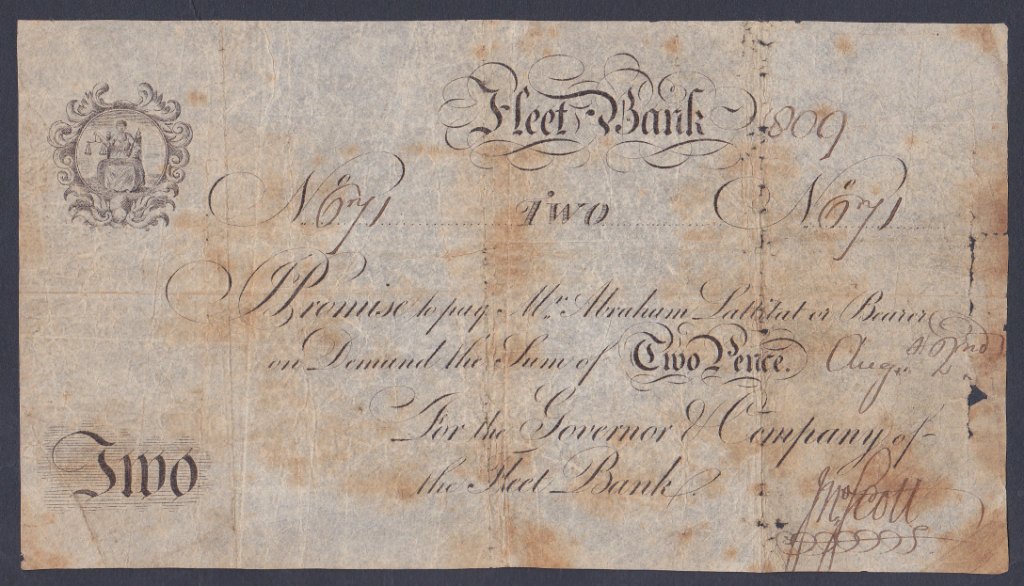 Fleet Bank 809
No 671 Two No 671
I Promise to pay Mr. Abraham Lattitat or Bearer
on Demand the Sum of Two Pence. Augt. 2nd
For the Governor & Company of
the Fleet Bank.
Two
Scott